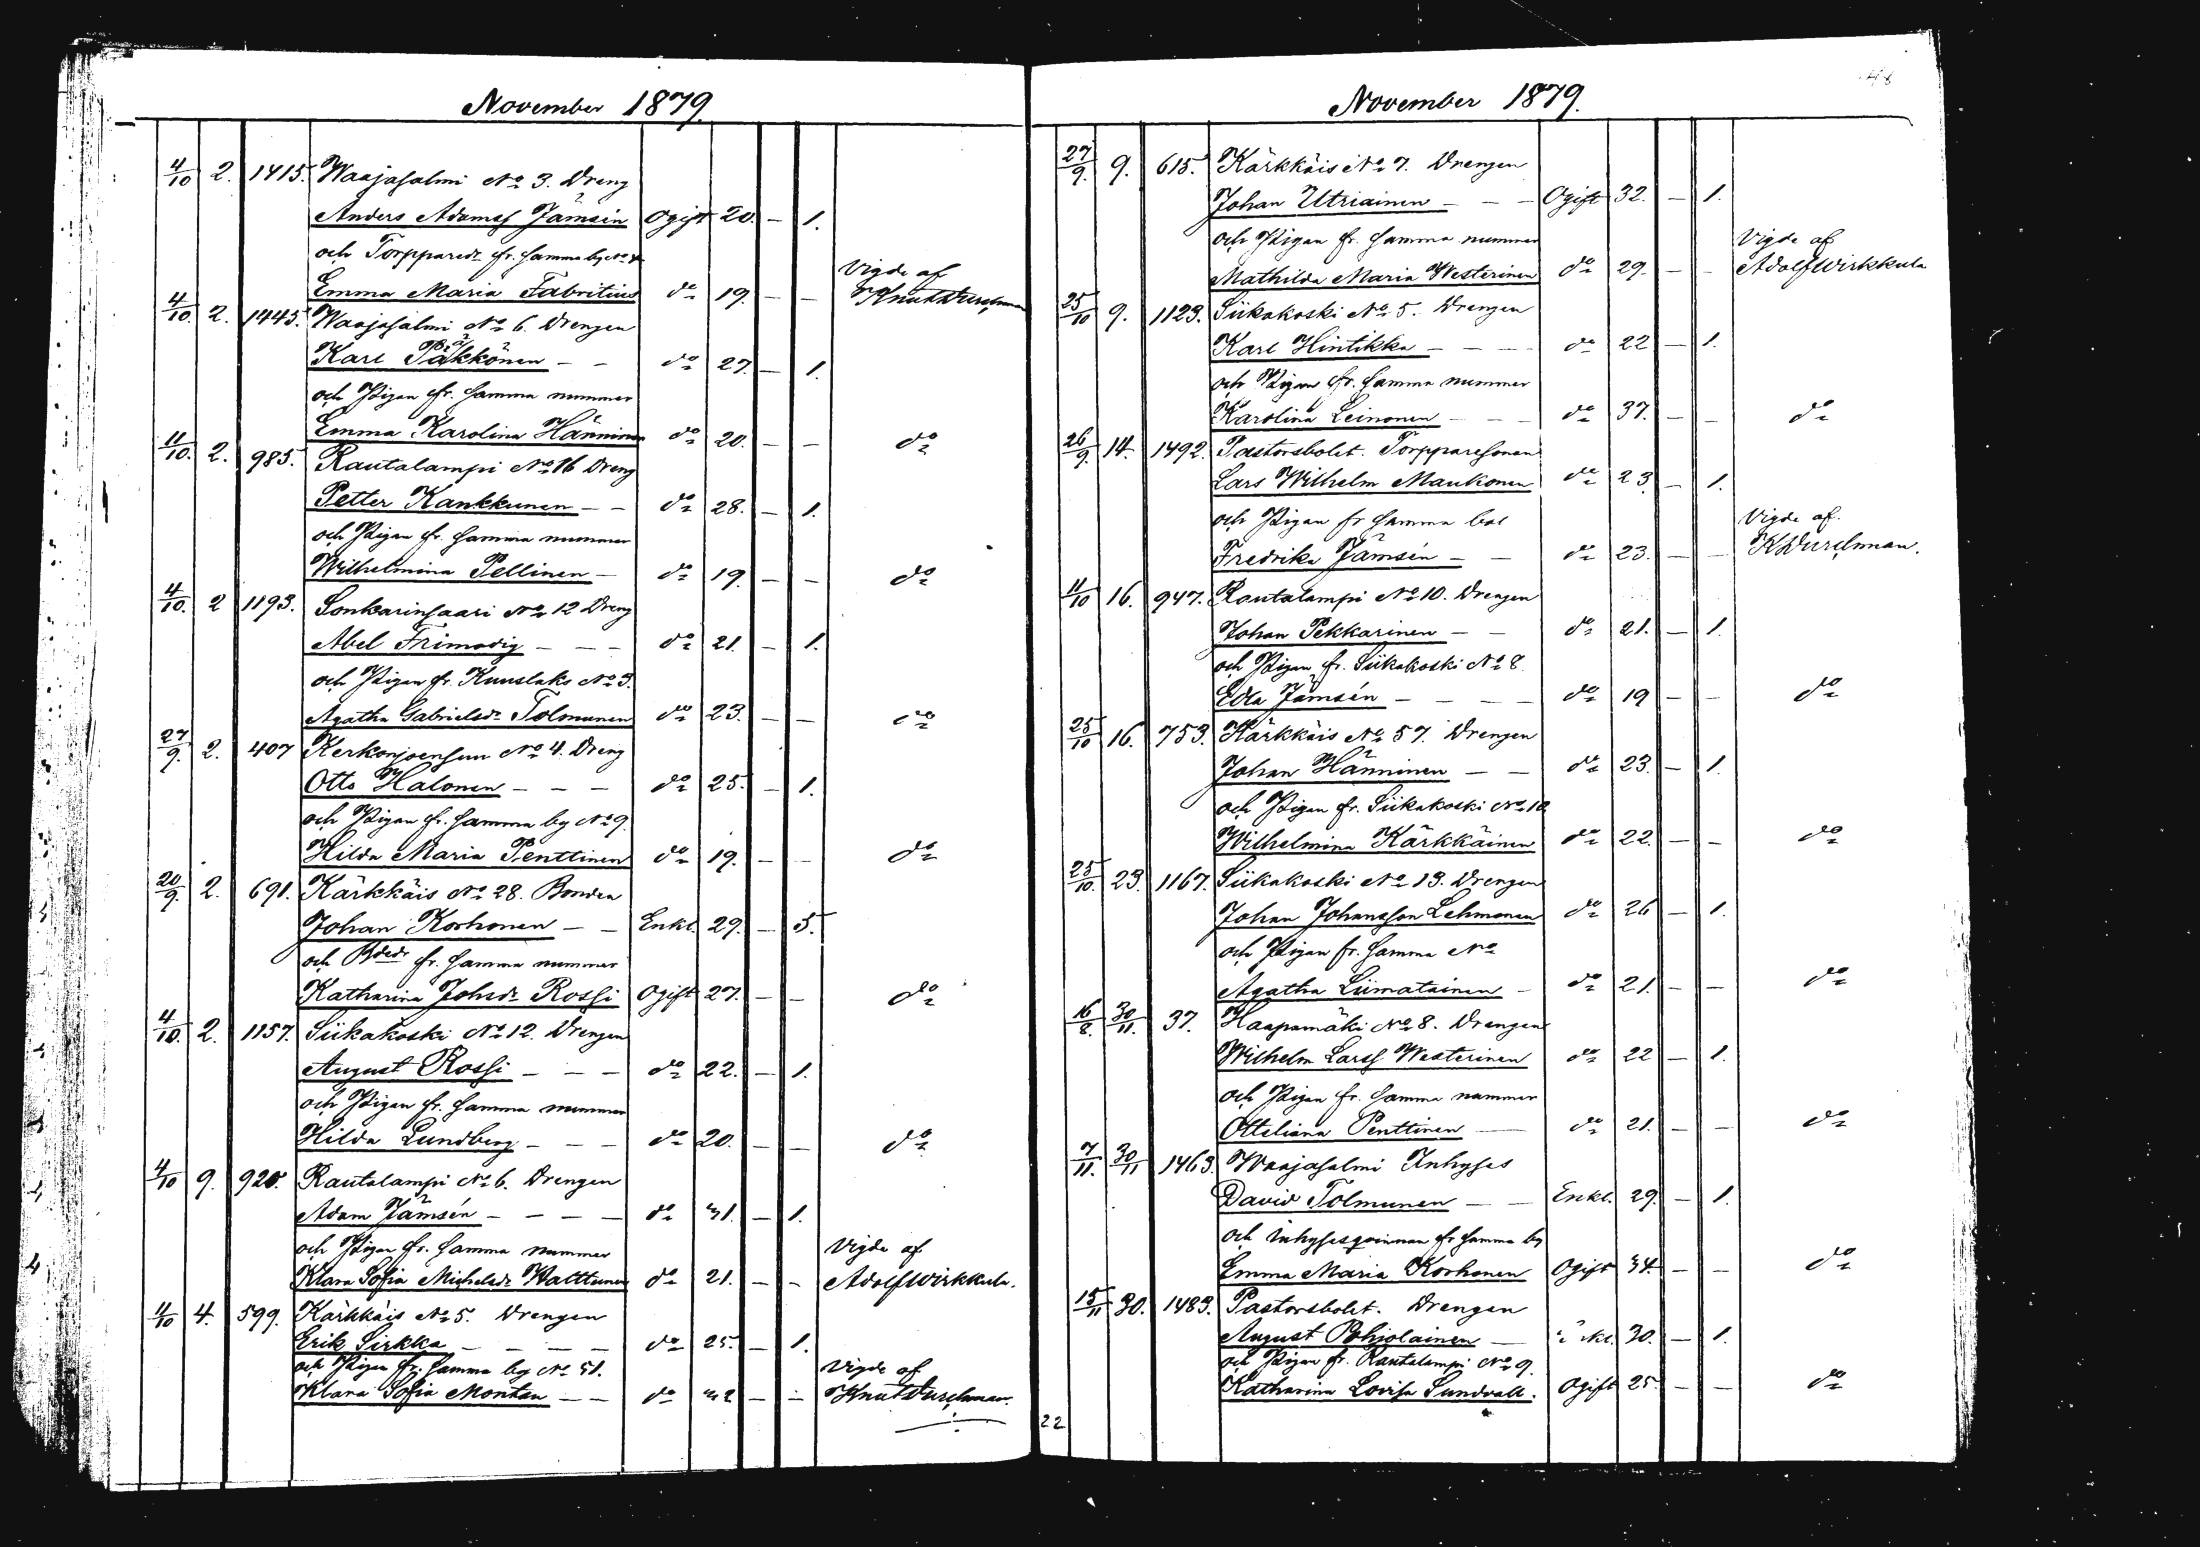 November 1879.
4/10 2. 1415. Waajasalmi No 3. Dreng
Anders Adamss Jämsén Ogift 20. — 1.
och Torppared. fr. samma by No 4
Emma Maria Fabritius do 19. — — Vigde af Knut Durchman
4/10. 2. 1445. Waajasalmi No 6. Drengen
Karl Päkkönen — — do 27. — 1.
och Pigan fr. samma nummer
Emma Karolina Hänninen do 20. — — do
11/10. 2. 985. Rautalampi No 16 Dreng
Petter Kankkunen — — do 28. — 1.
och Pigan fr. samma nummer
Wilhelmina Pellinen — do 19. — — do
4/10. 2 1193. Sonkarinsaari No 12 Dreng
Abel Frimodig — — — do 21. — 1.
och Pigan fr. Kuuslaks No 3.
Agatha Gabrielsdr Tolmunen do 23. — — do
27/9. 2. 407 Kerkonjoensuu No 4. Dreng
Otto Halonen — — — do 25. — 1.
och Pigan fr. samma by No 9.
Hilda Maria Penttinen do 19. — — do
20/9. 2. 691. Kärkkäis No 28. Bonden
Johan Korhonen — — Enkl. 29. — 3.
och Bdedr fr. samma nummer
Katharina Johsdr Rossi Ogift 27. — — do
4/10. 2. 1157. Siikakoski No 12. Drengen
August Rossi — — — do 22. — 1.
och Pigan fr. samma nummer
Hilda Lundberg — — — do 20. — — do
4/10 9. 925. Rautalampi No 6. Drengen
Adam Jämsén — — — — do 31. — 1.
och Pigan fr. samma nummer Vigde af
Klara Sofia Michelsdr Walttunen do 21. — — Adolf Wirkkula.
11/10 4. 599. Kärkkäis No 5. Drengen
Erik Sirkka — — — — do 25. — 1.
och Pigan fr. samma by No 51. Vigde af
Klara Sofia Montan — — do 32 — — Knut Durchman.
November 1879.
27/9. 9. 615. Kärkkäis No 7. Drengen
Johan Utriainen — — — Ogift 32. — 1.
och Pigan fr. samma nummer Vigde af
Mathilda Maria Westerinen do 29. — — Adolf Wirkkula
25/10 9. 1123. Siikakoski No 5. Drengen
Karl Hintikka — — — do 22 — 1.
och Pigan fr. samma nummer
Karolina Leinonen — — — do 37. — — do
26/9. 14. 1492. Pastorsbolet. Torpparesonen
Lars Wilhelm Maukonen do 23. — 1.
och Pigan fr samma bol Vigde af.
Fredrika Jämsén — — do 23. — — K Durchman.
11/10 16. 947. Rautalampi No 10. Drengen
Johan Pekkarinen — — do 21. — 1.
och Pigan fr. Siikakoski No 8.
Eda Jämsén — — — — do 19 — — do
25/10 16. 753. Kärkkäis No 57. Drengen
Johan Hänninen — — do 23. — 1.
och Pigan fr. Siikakoski No 10
Wilhelmina Kärkkäinen do 22. — — do
25/10. 23. 1167. Siikakoski No 13. Drengen
Johan Johansson Lehmonen do 26 — 1.
och Pigan fr. samma No
Agatha Liimatainen — do 21. — — do
16/8. 30/11. 37. Haapamäki No 8. Drengen
Wilhelm Larss Westerinen do 22 — 1.
och Pigan fr. samma nummer
Otteliana Penttinen — do 21. — — do
7/11. 30/11 1463. Waajasalmi Inhyses
David Tolmunen — — Enkl. 29. — 1.
och inhysesqvinnan fr samma by
Emma Maria Korhonen Ogift 34. — — do
15/11 30. 1483. Pastorsbolet. Drengen
August Pohjolainen — 30. — 1.
och Pigan fr. Rautalampi No 9.
Katharina Lovisa Sundvall. Ogift 25. — — do
22